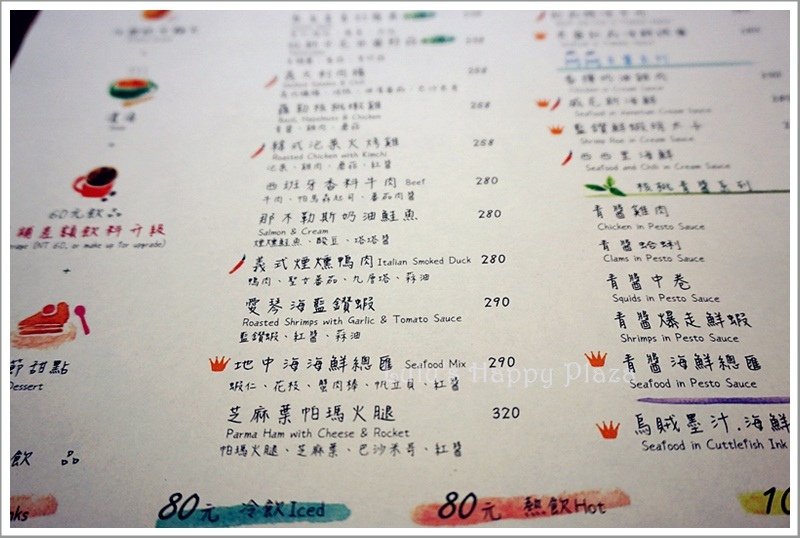 60元飲品
補差額飲料升級
(NT 60, or make up for upgrade)
+
節甜點
Dessert
飲
268
義大利肉腸
258
蘿勒核桃燉雞
268
Basil, Hazelnuts & Chicken
青醬、雞肉、蘑菇
韓式泡菜火烤雞
268
Roasted Chicken with Kimchi
泡菜、雞肉、蘑菇、紅醬
西班牙香料牛肉 Beef
280
牛肉、帕馬森起司、番茄肉醬
那不勒斯奶油鮭魚
280
Salmon & Cream
煙燻鮭魚、酸豆、塔塔醬
義式煙燻鴨肉 Italian Smoked Duck 280
鴨肉、聖女番茄、九層塔、蒜油
愛琴海藍鑽蝦
290
Roasted Shrimps with Garlic & Tomato Sauce
藍鑽蝦、紅醬、蒜油
地中海海鮮總匯 Seafood Mix 290
蝦仁、花枝、蟹肉棒、帆立貝、紅醬
芝麻葉帕瑪火腿
320
Parma Ham with Cheese & Rocket
帕瑪火腿、芝麻葉、巴沙米哥、紅醬
威尼斯海鮮
Seafood in American Cream Sauce
Shrimp Roe in Cream Sauce
西西里海鮮
Seafood and Chili in Cream Sauce
核桃青醬系列
青醬雞肉
Chicken in Pesto Sauce
青醬蛤蜊
Clams in Pesto Sauce
青醬中卷
Squids in Pesto Sauce
青醬爆走鮮蝦
Shrimps in Pesto Sauce
青醬海鮮總匯
Seafood in Pesto Sauce
烏賊墨汁.海鮮
Seafood in Cuttlefish Ink
80元 冷飲Iced
80元 熱飲Hot
10
Lulu's Happy Plaza